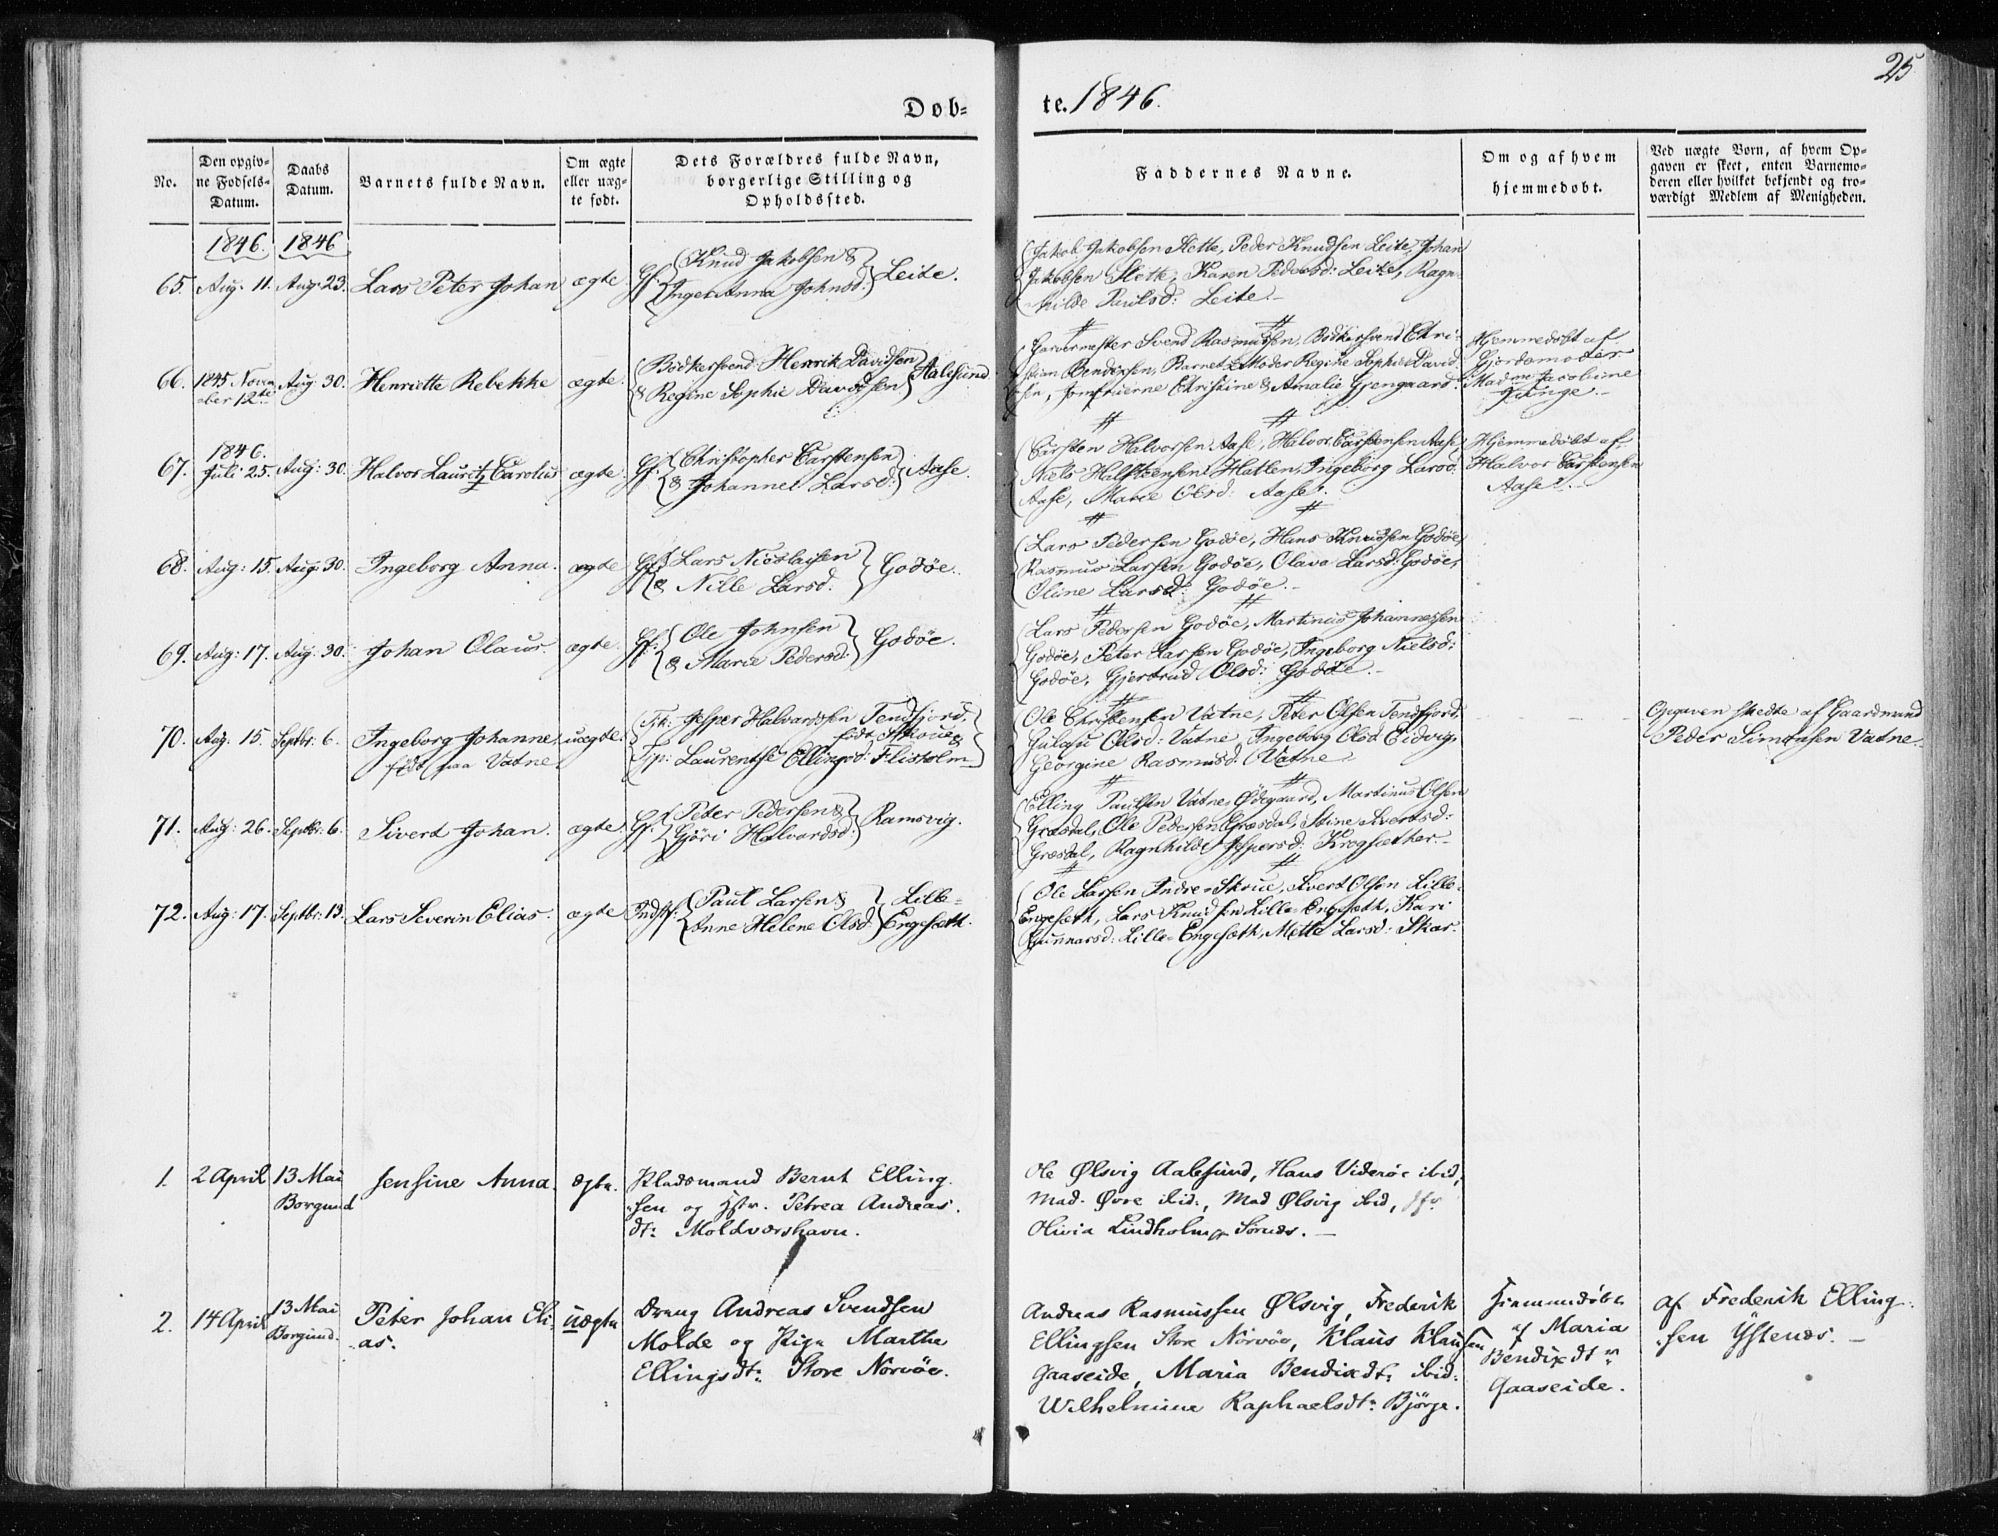 25
Døb-
te. 1846.
No.
Den opgiv-
ne Fødsels-
Datum.
Daabs
Datum.
Barnets fulde Navn.
Om ægte
eller uæg-
te født.
Dets Forældres fulde Navn,
borgerlige Stilling og
Opholdssted.
Faddernes Navne.
Om og af hvem
hjemmedøbt.
Ved uægte Børn, af hvem Op-
gaven er skeet, enten Barnemo-
deren eller hvilket bekjendt og tro-
værdigt Medlem af Menigheden.
1846. 1846
65. Aug. 11. Aug. 23. Lars Peter Johan ægte.
Gf: Knud Jakobsen &
Inger Anna Johnsd: Leite.
Jakob Jakobsen Slette, Peder Knudsen Leite, Johan
Jakobsen Slette, Karen Pedersd: Leite, Ragn-
hilde Paulsd: Leite.
66. 1845 Novem
ber 12te Aug: 30. Henriette Rebekke ægte.
Bødkersvend Henrik Davidsen
& Regine Sophie Davidsen Aalesund
Garvermester Svend Rasmussen, Bødkersvend Chri-
stian Bendixsen, Barnets Moder Regine Sophie David
sen, Jomfruerne Christine & Amalie Gjengaard.
Hjemmedøbt af
Gjordemoder
Madm Jacobine
Junge.
67. 1846.
Juli 25. Aug: 30. Halvor Lauritz Carolus ægte.
Gf: Christopher Carstensen
& Johanne Larsd: Aase.
Carsten Halvorsen Aase, Halvor Carstensen Aase
Niels Halstensen Hatlen, Ingeborg Larsd:
Aase, Marie Olsd: Aase.
Hjemmedøbt af
Halvor Carstensen
Aase.
68. Aug: 15. Aug. 30. Ingeborg Anna. ægte
Gf: Lars Nicolaisen
& Nille Larsd: Godøe.
Lars Pedersen Godøe, Hans Knudsen Godøe,
Rasmus Larsen Godøe, Olava Larsd: Godøe,
Oline Larsd: Godøe.
69. Aug: 17. Aug. 30. Johan Olaus. ægte.
Gf: Ole Johnsen
& Marie Pedersd: Godøe.
Lars Pedersen Godøe, Martinus Johannessen
Godøe, Peter Larsen Godøe, Ingeborg Nielsd:
Godøe, Gjertrud Olsd: Godøe.
70. Aug. 15. Septbr: 6. Ingeborg Johanne,
født paa Vatne. uægte.
Jesper Halvardssen Tenfjord,
Laurentse Ellingsd: Flisholm
Ole Christensen Vatne, Peter Olsen Tenfjord,
Olsd: Vatne, Ingeborg Olsd Eidvig,
Georgine Rasmusd: Vatne.
Opgaven skedte af Gaardmand
Peder Simonsen Vatne.
71. Aug: 26. Septbr: 6. Sivert Johan. ægte.
Gf: Peter Pedersen &
Gjøri Halvardsd: Ramsvig.
Elling Paulsen Vatne Ødegaard, Martinus Olsen
Græsdal, Ole Pedersen Græsdal, Stine Sivertsd:
Græsdal, Ragnhilde Jespersd: Krogsæther.
72. Aug: 17. Septbr: 13. Lars Severin Elias. ægte
Indst: Paul Larsen &
Anne Helene Olsd: Lille-
Engesæth.
Ole Larsen Indre-Skrue, Sivert Olsen Lille-
Engesæth, Lars Knudsen Lille-Engesæth, Kari
Gunnarsd: Lille-Engesæth, Mette Larsd: Skar.
1. 2 April 13 Mai
Borgund Jensine Anna. ægte.
Pladsmand Bernt Elling-
sen og Hstr. Petrea Andreas-
dt: Moldværshavn.
Ole Ølsvig Aalesund, Hans Viderøe ibid,
Mad. Øvre ibid, Mad Ølsvig ibid, Jfr
Olivia Lindholm Sornæs.
2. 14 April 13 Mai
Borgund. Peter Johan Eli-
as. uægte
Dreng Andreas Svendsen
Molde og Pige Martha
Ellingsdt: Store Nørvøe.
Andreas Rasmussen Ølsvig, Frederik
Ellingsen Store Nørvøe, Klaus Klausen
Gaaseide, Maria Bendixdt: ibid.
Wilhelmine Raphaelsdt: Bjørge.
Hjemmedøbt
af Maria
Bendixdtr
Gaaseide.
af Frederik Elling-
sen Ystenæs.